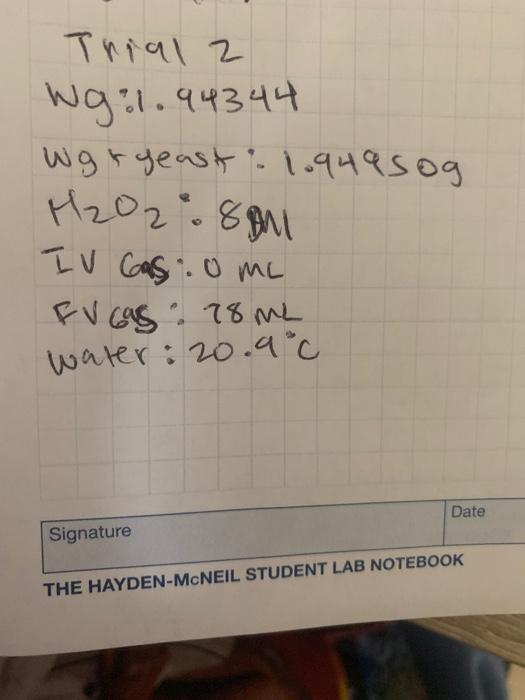 Trial 2
Wg: 1.94344
Wg + yeast: 1.94950g
H2O2: 8 ml
IV Gas: 0 mL
FV Gas: 78 mL
Water: 20.9°C
Signature
Date
THE HAYDEN-McNEIL STUDENT LAB NOTEBOOK